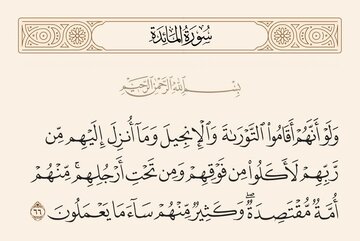 سُورَةُ المَائِدَة
بِسْمِ اللَّهِ الرَّحْمَٰنِ الرَّحِيمِ
وَلَوْ أَنَّهُمْ أَقَامُوا۟ ٱلتَّوْرَىٰةَ وَٱلْإِنجِيلَ وَمَآ أُنزِلَ إِلَيْهِم مِّن
رَّبِّهِمْ لَأَكَلُوا۟ مِن فَوْقِهِمْ وَمِن تَحْتِ أَرْجُلِهِم ۚ مِّنْهُمْ
أُمَّةٌ مُّقْتَصِدَةٌ ۖ وَكَثِيرٌ مِّنْهُمْ سَآءَ مَا يَعْمَلُونَ ٦٦